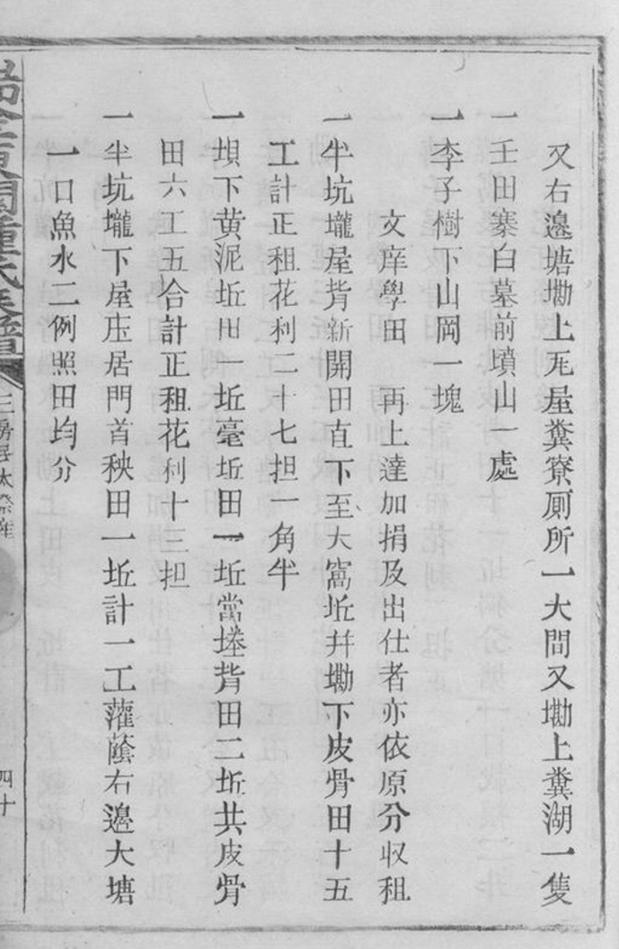 又右邊塘墈上瓦屋糞寮厠所一大間又墈上糞湖一隻
一壬田寨白墓前墳山一處
一李子樹下山岡一塊
文庠學田 再上達加捐及出仕者亦依原分収租
一半坑壠屋背新開田直下至大窩坵幷墈下皮骨田十五
工計正租花利二十七担一角半
一垻下黄泥坵田一坵毫坵田一坵當墶背田二坵共皮骨
田六工五合計正租花利十三担
一半坑壠下屋庄居門首秧田一坵計一工灌蔭右邊大塘
一口魚水二例照田均分
三房
四十